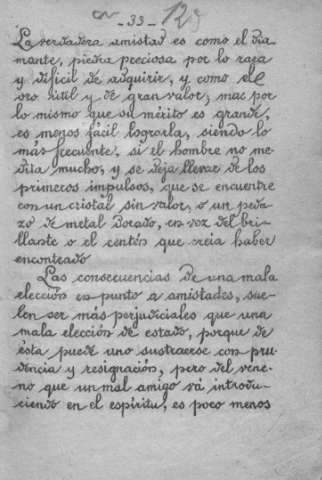 - 33 -
La verdadera amistad es como el dia
mante, piedra preciosa por lo rara
y dificil de adquirir, y como el
oro útil y de gran valor; mas por
lo mismo que su mérito es grande,
es menos fácil lograrla, siendo lo
más frecuente, si el hombre no me
dita mucho, y se deja llevar de los
primeros impulsos, que se encuentre
con un cristal sin valor, o un peda
zo de metal dorado, en vez del bri-
llante o el centén que creia haber
encontrado
Las consecuencias de una mala
elección en punto a amistades, sue-
len ser más perjudiciales que una
mala elección de estado, porque de
ésta puede uno sustraerse con pru
dencia y resignación, pero del vene-
no que un mal amigo vá introdu-
ciendo en el espíritu, es poco menos